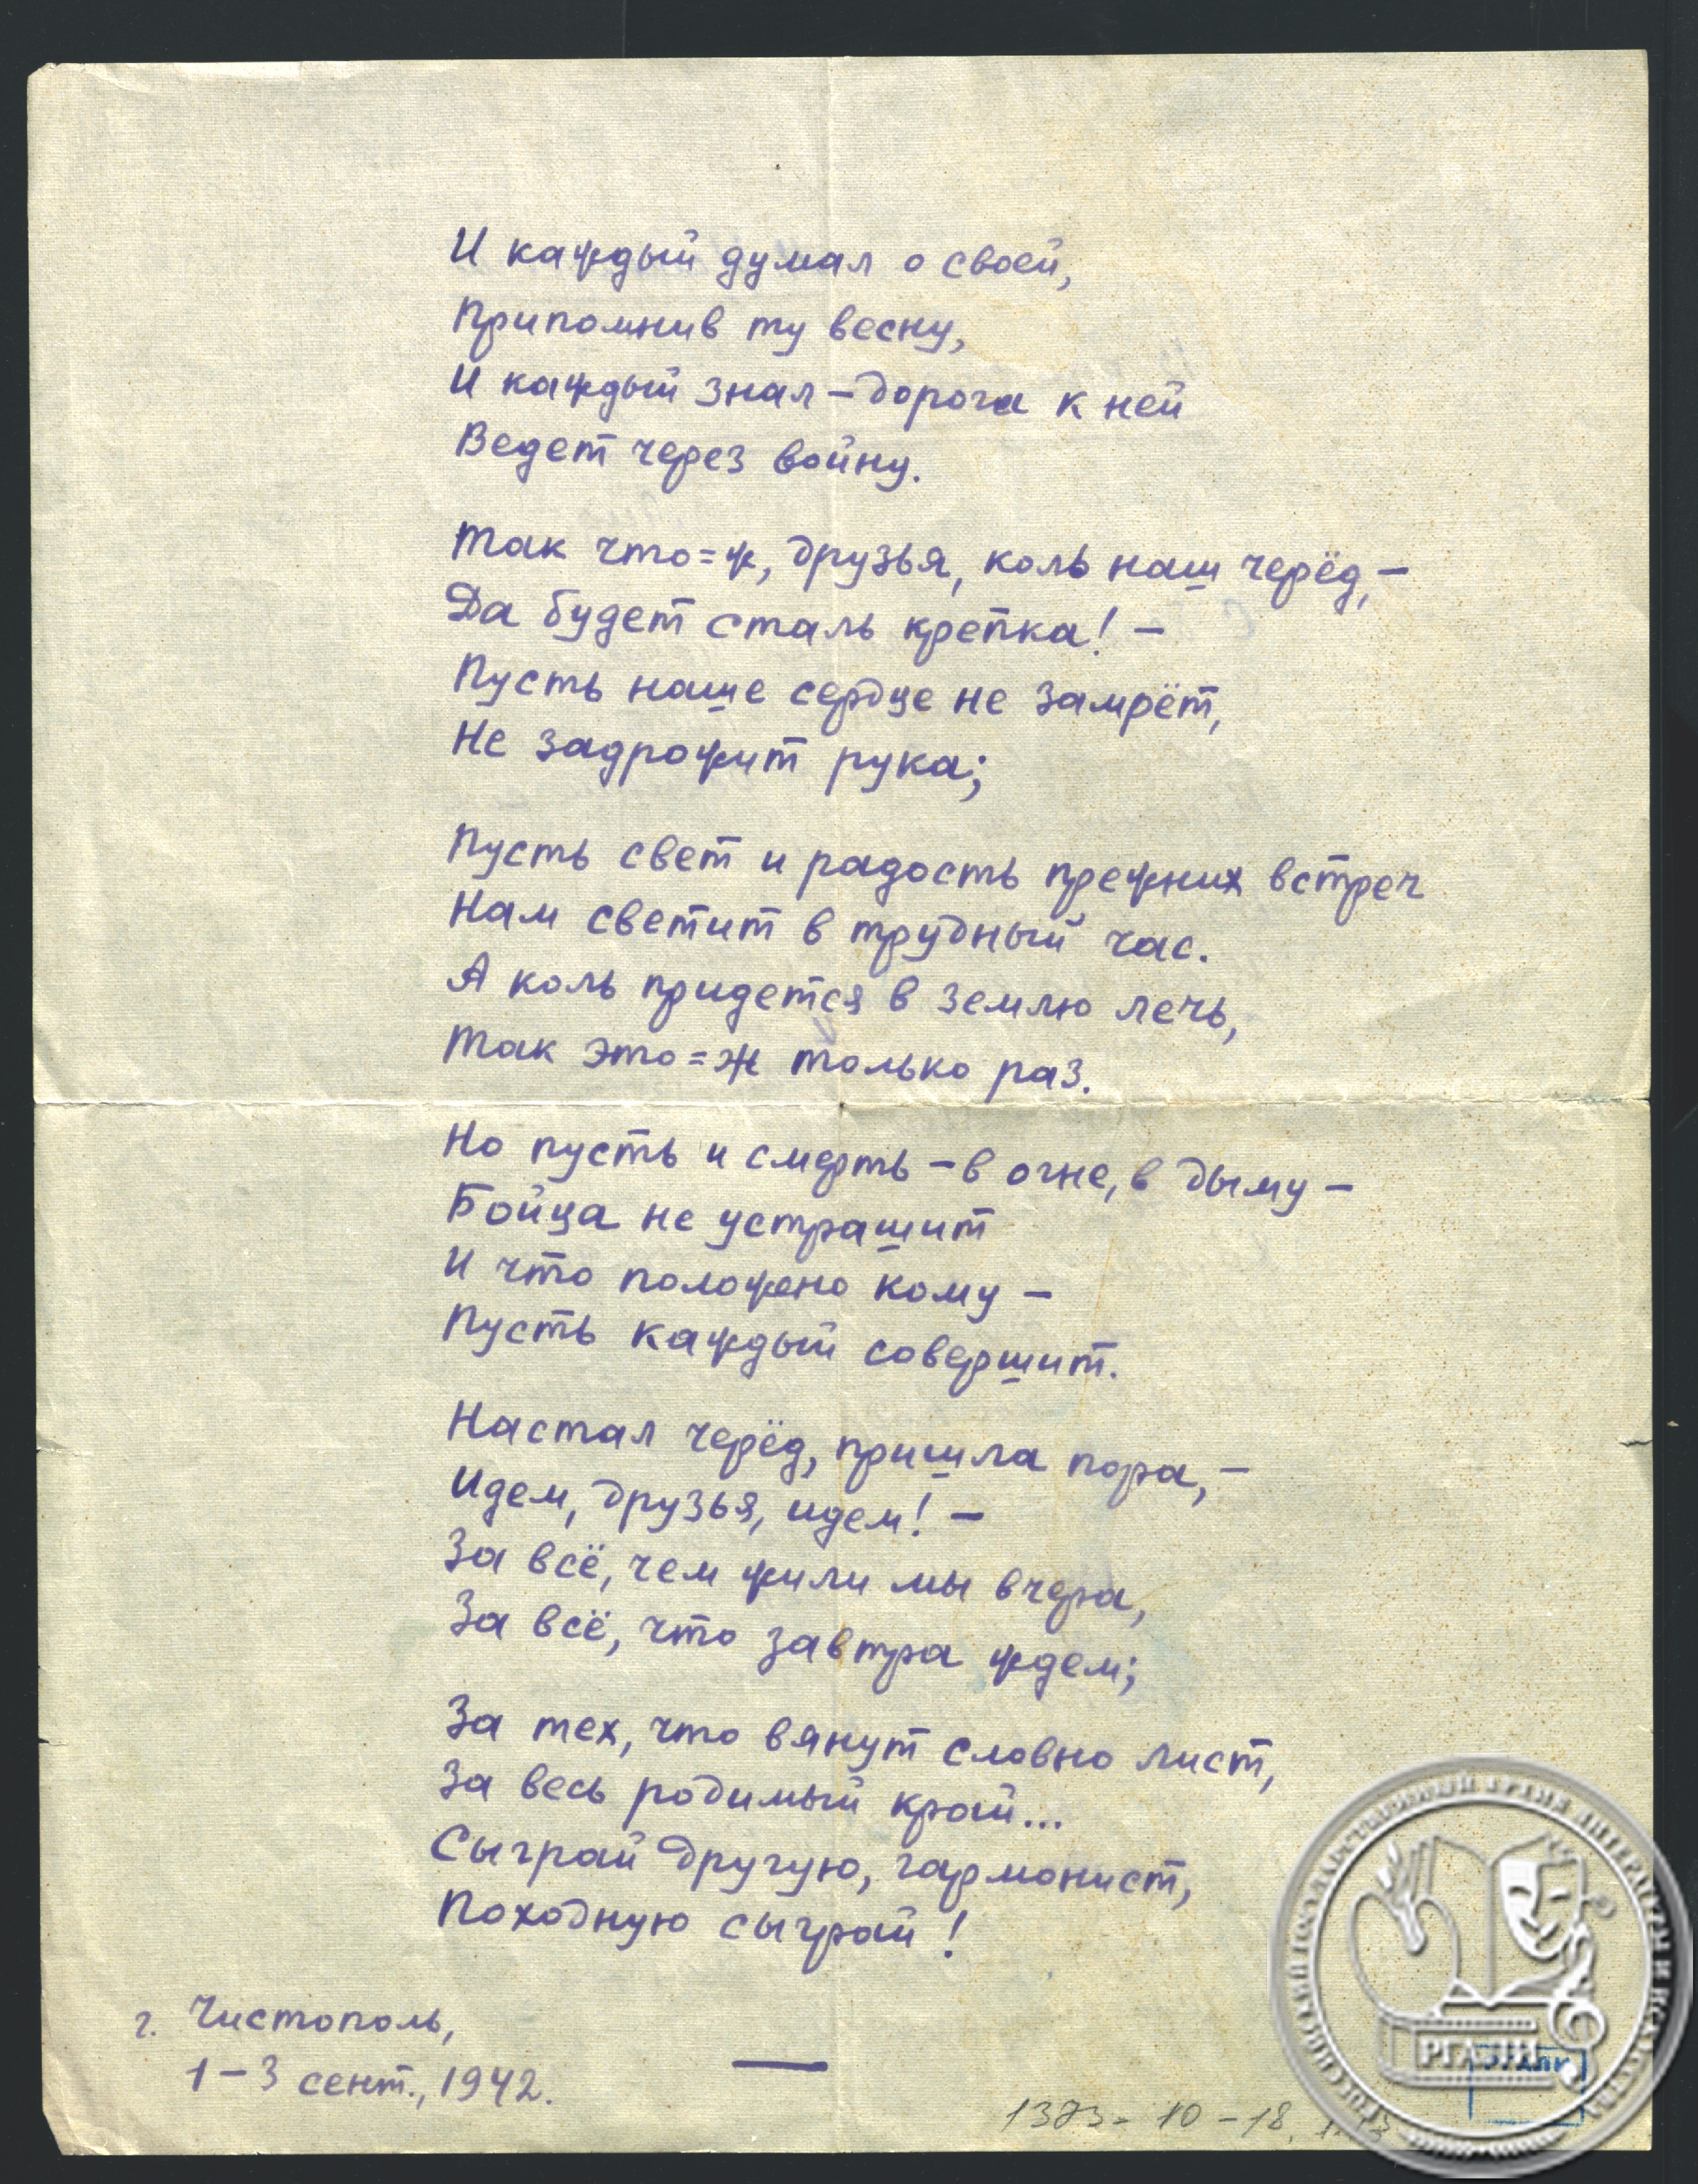 И каждый думал о своей,
Припомнив ту весну,
И каждый знал – дорога к ней
Ведет через войну.
Так что=ж, друзья, коль наш черёд, –
Да будет сталь крепка! –
Пусть наше сердце не замрёт,
Не задрожит рука;
Пусть свет и радость прежних встреч
Нам светит в трудный час.
А коль придется в землю лечь,
Так это=ж только раз.
Но пусть и смерть – в огне, в дыму –
Бойца не устрашит
И что положено кому –
Пусть каждый совершит.
Настал черёд, пришла пора, –
Идем, друзья, идем! –
За всё, чем жили мы вчера,
За всё, что завтра ждем;
За тех, что вянут словно лист,
За весь родимый край...
Сыграй другую, гармонист,
Походную сыграй!
г. Чистополь,
1 – 3 сент., 1942.
1373 - 10 - 18,
РОССИЙСКИЙ ГОСУДАРСТВЕННЫЙ АРХИВ ЛИТЕРАТУРЫ И ИСКУССТВА
РГАЛИ